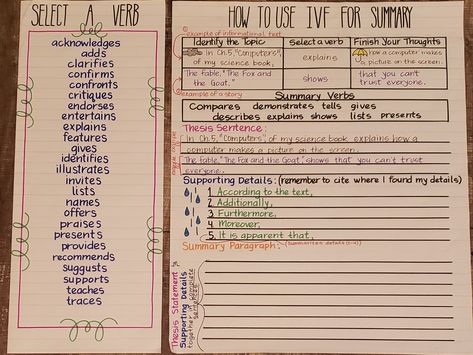 SELECT A VERB
acknowledges
adds
clarifies
confirms
confronts
critiques
endorses
entertains
explains
features
gives
identifies
illustrates
invites
lists
names
offers
praises
presents
provides
recommends
suggusts
supports
teaches
traces
HOW TO USE IVF FOR SUMMARY
example of informational text
Identify the Topic
Select a verb
Finish Your Thoughts
In Ch.5, "Computers", of my science book,
explains
how a computer makes a picture on the screen.
The Fable, "The Fox and the Goat,"
shows
that you can't trust everyone.
example of a story
Summary Verbs
Compares demonstrates tells gives
describes explains shows lists presents
Thesis Sentence:
In Ch.5, "Computers", of my science book explains how a
computer makes a picture on the screen.
The Fable, "The Fox and the Goat," shows that you can't trust
everyone.
Supporting Details: (remember to cite where I found my details)
1. According to the text,
2. Additionally,
3. Furthermore,
4. Moreover,
5. It is apparent that,
Summary Paragraph:
Thesis Statement &
Supporting Details
together in complete
sentences